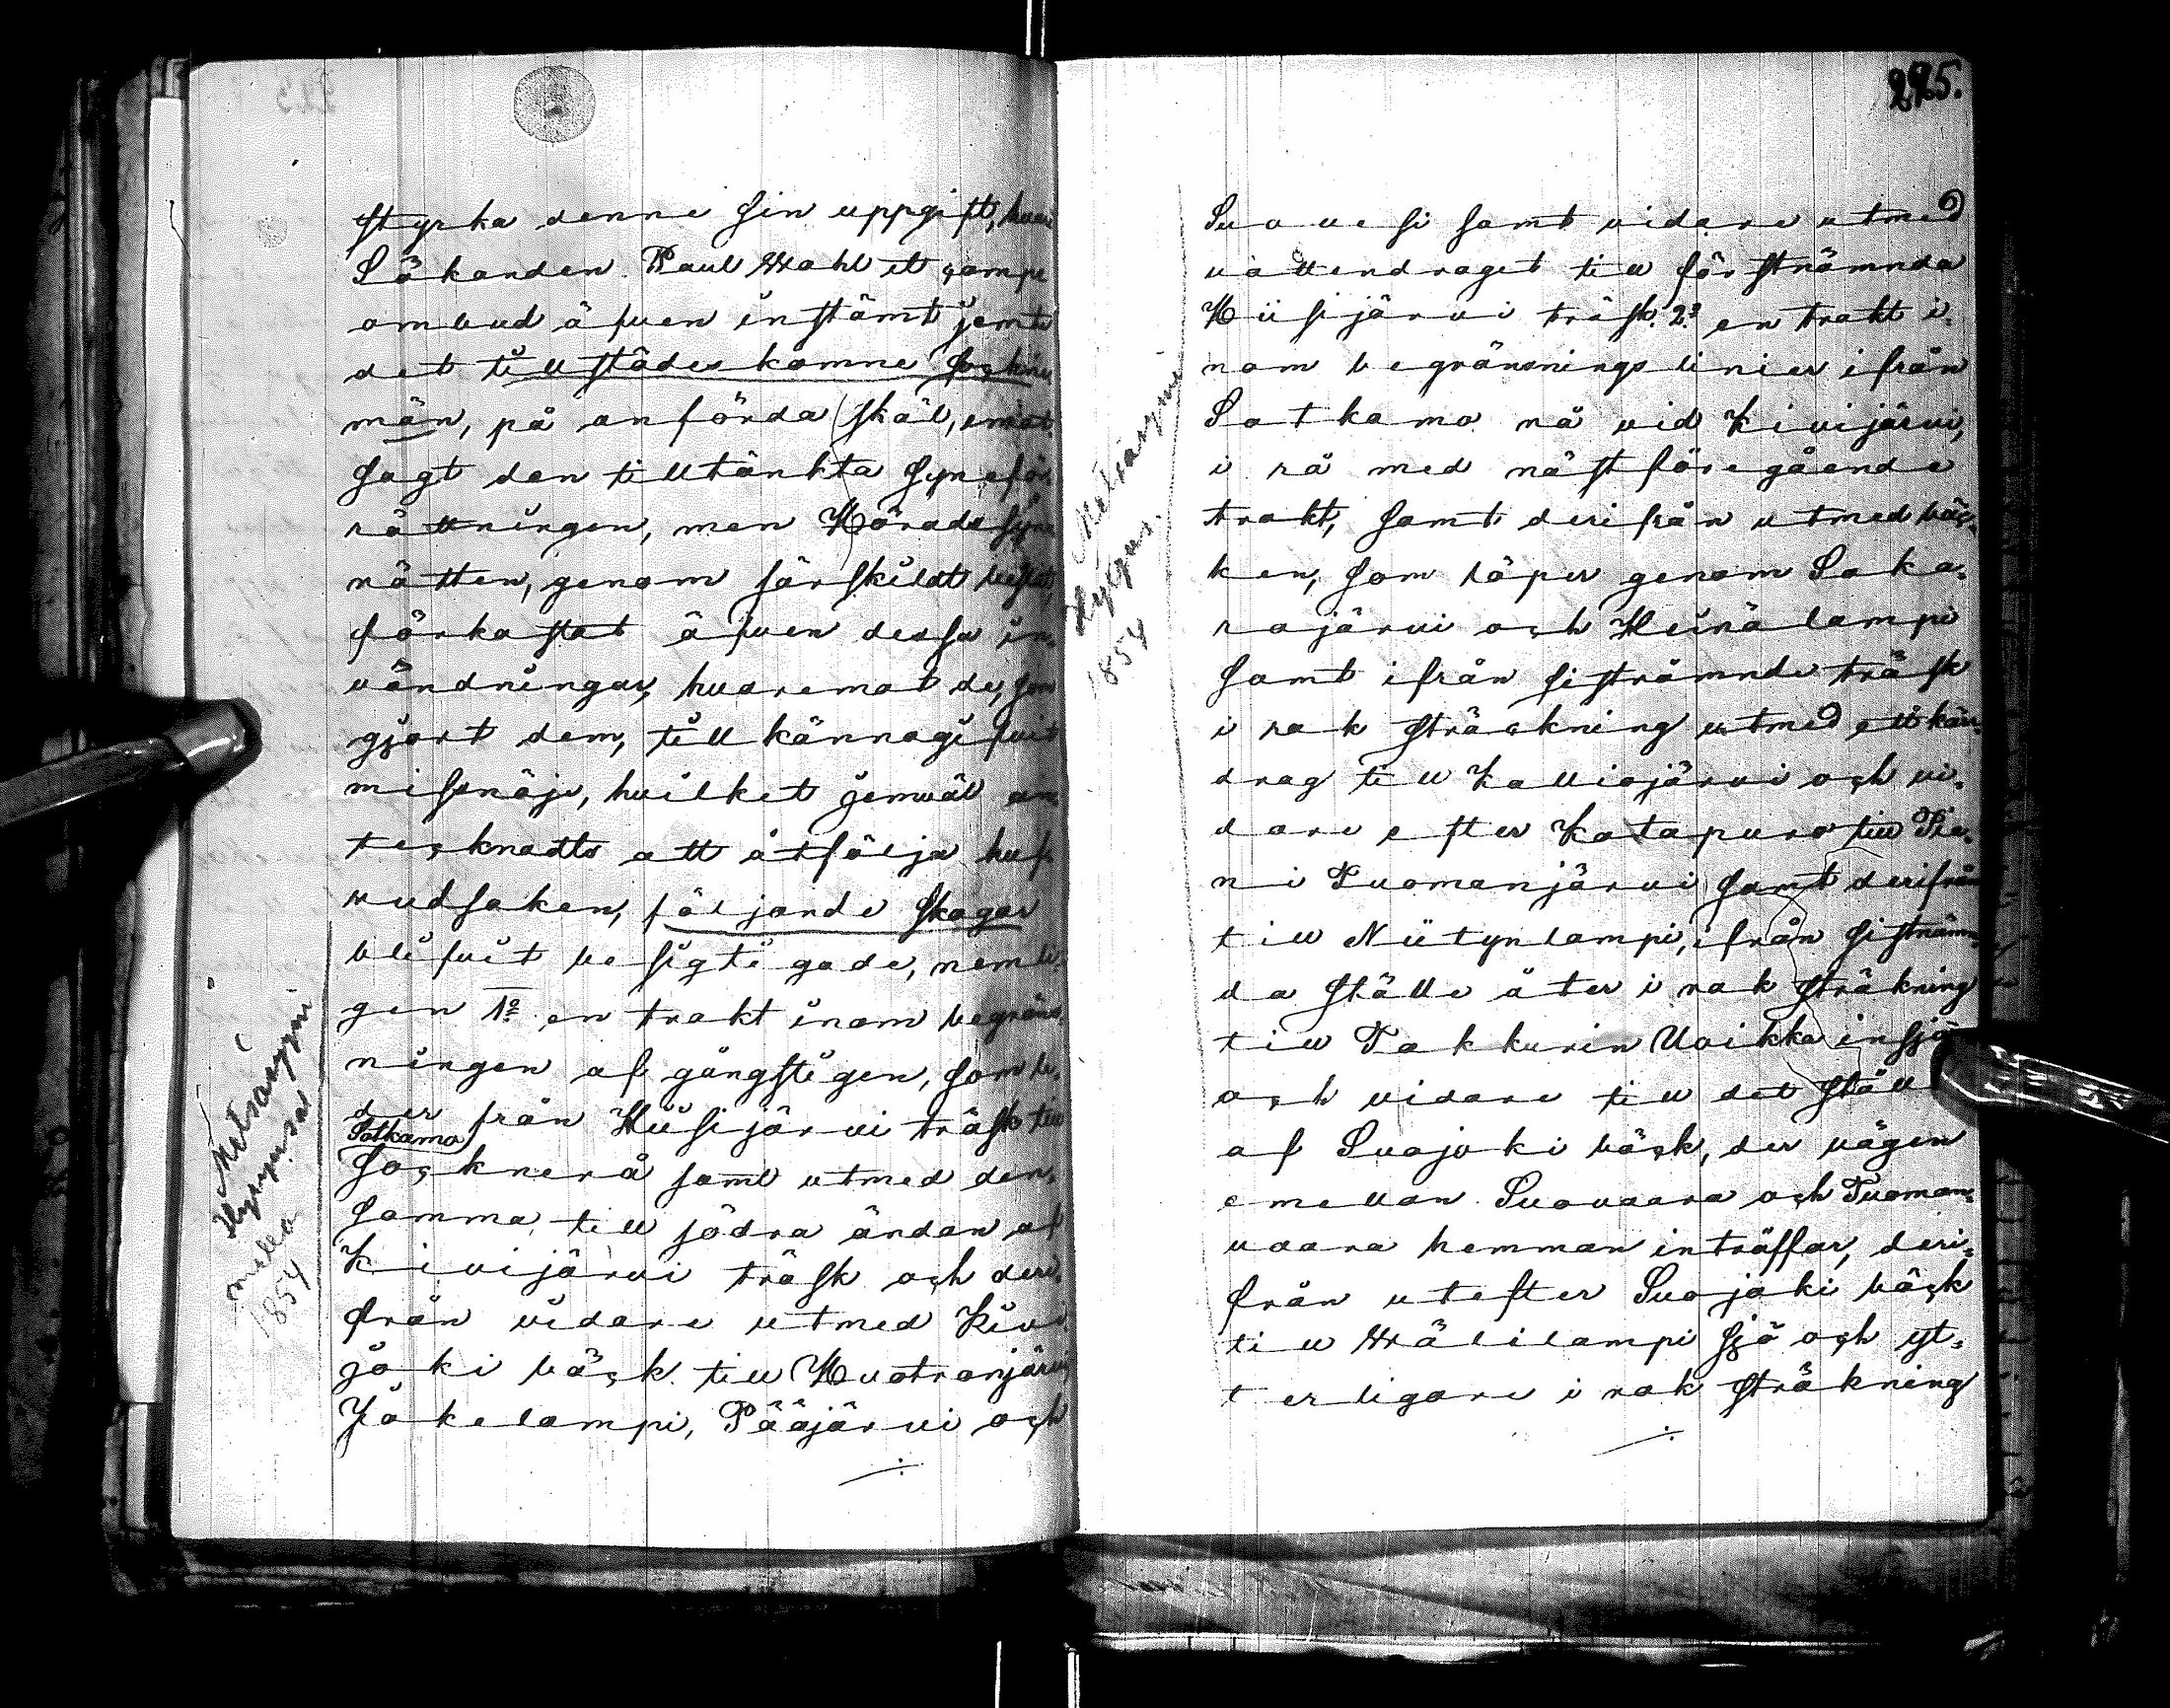 styrka denne sin uppgift, hvar
Sökanden Paul Wahl et comp:s
ombud äfven instämt jemte
det tillstädes komne sockne
män, på anförda skäl, emot
sagt den tilltänkta syneför
rättningen, men Härads syne
rätten, genom särskildt beslut,
förkastat äfven dessa in-
vändningar, hvaremot de, som
gjort dem, tillkännagifvit
missnöje, hvilket jemväl an-
tecknadts att åtfölja huf-
vudsaken, följande skogar
blifvit besigtigade, nemli-
gen 1º en trakt inom begräns-
ningen af gångstigen, som le-
der från Hiisijärvi träsk till
Sotkamo
Socknerå samt utmed den-
samma till södra ändan af
Kivijärvi träsk och deri-
från vidare utmed Kivi-
joki bäck till Huotranjärvi,
Jökelampi, Pääjärvi och
Metsäsyyni
Hyrynsal
mella
1854
225.
Suovesi samt vidare utmed
vattendraget till förstnämnda
Hiisijärvi träsk. 2º en trakt i-
nom begränsnings linier ifrån
Sotkamo rå vid Kivijärvi,
i rå med nästföregående
trakt, samt derifrån utmed bäc-
ken, som löper genom Soka-
rajärvi och Heinälampi
samt ifrån sistnämnde träsk
i rak sträckning utmed ett kärr-
drag till Kalliojärvi och vi-
dare efter Katapuro till Pie-
ni Tuomanjärvi samt derifrån
till Niitynlampi, ifrån sistnämn-
da ställe åter i rak sträkning
till Takkurin Uoikka insjö
och vidare till det ställ
af Suojoki bäck, der vägen
emellan Suovaara och Tuoman-
vaara hemman inträffar, deri-
från utefter Suojoki bäck
till Wälilampi sjö och yt-
terligare i rak sträkning
Metsäsyyni
Hyryns.
1854